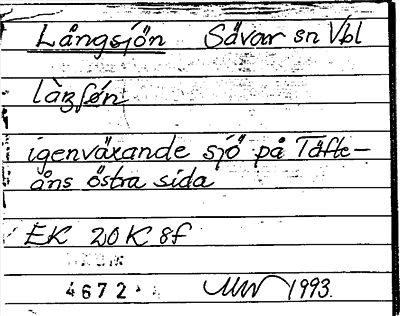 Långsjön Sävar sn Vbl
igenväxande sjö på Täfte-
åns östra sida
EK 20K 8f
4672 1993.